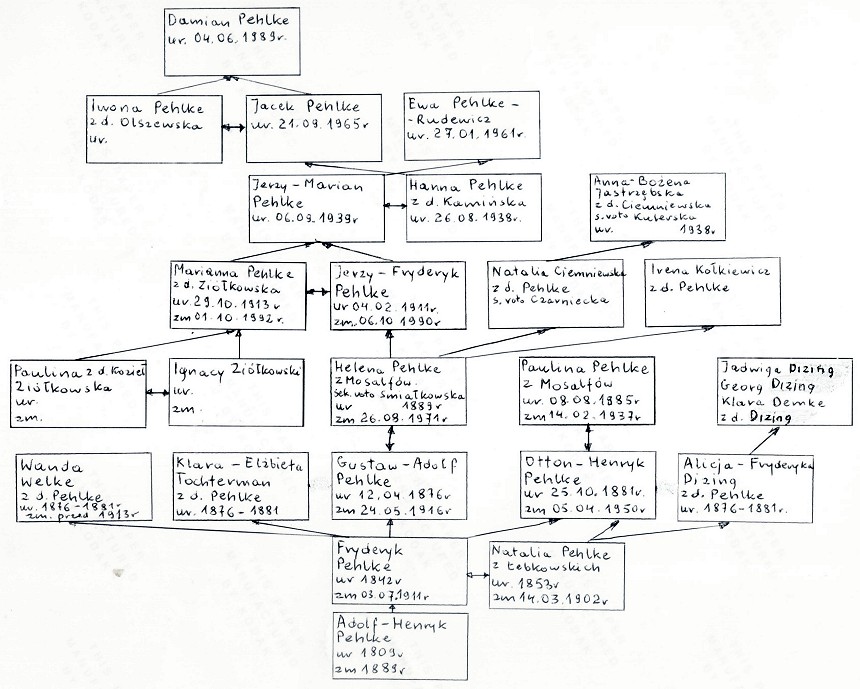 Damian Pehlke
ur. 04.06.1989r.
Iwona Pehlke
z d. Olszewska
ur.
Jacek Pehlke
ur. 21.09.1965r
Ewa Pehlke -
- Rudewicz
ur. 27.01.1961r.
Jerzy - Marian
Pehlke
ur. 06.09.1939r
Hanna Pehlke
z d. Kamińska
ur. 26.08.1938r.
Anna-Bożena
Jastrzębska
z d. Ciemniewska
s. voto Kuberska
ur. 1938r.
Marianna Pehlke
z d. Ziółkowska
ur 29.10.1913r
zm 01.10.1992r.
Jerzy - Fryderyk
Pehlke
ur 04.02.1911r.
zm. 06.10 1990r.
Natalia Ciemniewska
z d. Pehlke
s. voto Czarniecka
Irena Kołkiewicz
z d. Pehlke
Paulina z d. Kozieł
Ziółkowska
ur.
zm.
Ignacy Ziółkowski
ur.
zm.
Helena Pehlke
z Mosalfów.
sek. voto Śmiałkowska
ur 1889r
zm 26.08.1971r
Paulina Pehlke
z Mosalfów
ur. 08.08.1885r
zm 14.02.1937r
Jadwiga Dizing
Georg Dizing
Klara Demke
z d. Dizing
Wanda
Welke
z d. Pehlke
ur. 1876-1881r
zm. przed 1913r
Klara - Elżbieta
Tochterman
z d. Pehlke
ur. 1876-1881
Gustaw - Adolf
Pehlke
ur 12.04.1876r
zm 24.05.1916r
Otton - Henryk
Pehlke
ur 25.10.1881r.
zm 05.04.1950r
Alicja - Fryderyka
Dizing
z d. Pehlke
ur. 1876-1881r.
Fryderyk
Pehlke
ur 1842r
zm 03.07.1911r
Natalia Pehlke
z Łebkowskich
ur. 1853r
zm 14.03.1902r
Adolf - Henryk
Pehlke
ur 1809r
zm 1889r